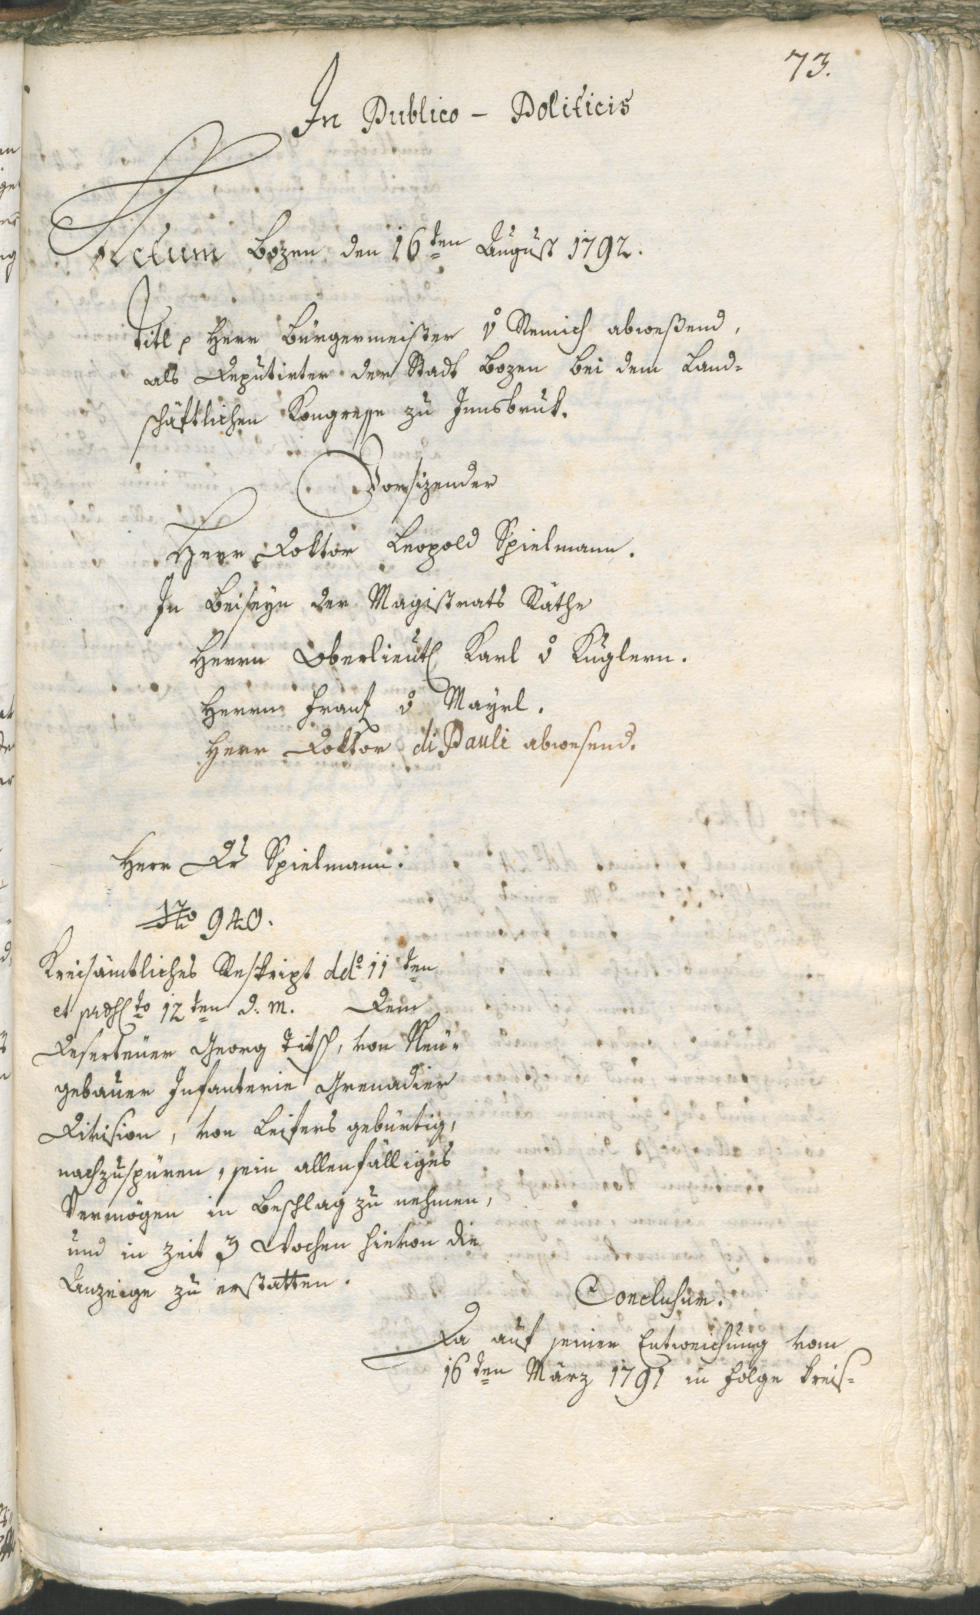 73.
In Publico - Politicis
Actum Bozen den 16ten August 1792.
Titl p Herr Bürgermeister v Remich abweßend,
als Deputirter der Stadt Bozen bei dem Land-
schäftlichen Kongresse zu Innsbruk.
Vorsizender
Herr Doktor Leopold Spielmann.
In Beiseyn der Magistrats Räthe
Herrn Oberlieut Karl v Kuglern.
Herrn Franz v Mayrl.
Herr Doktor di Pauli abwesend.
Herr Dr Spielmann.
Nro 940.
Kreisämtliches Reskript ddo 11ten
et 12ten d. M. Dem
Deserteuer Georg von Neu-
gebauer Infanterie Grenadier
Division, von Leifers gebürtig,
nachzuspüren, sein allenfälliges
Vermögen in Beschlag zu nehmen,
und in Zeit 3 Wochen hievon die
Anzeige zu erstatten.
Conclusum.
Da auf seiner Entweichung vom
16ten März 1791 in Folge kreis-